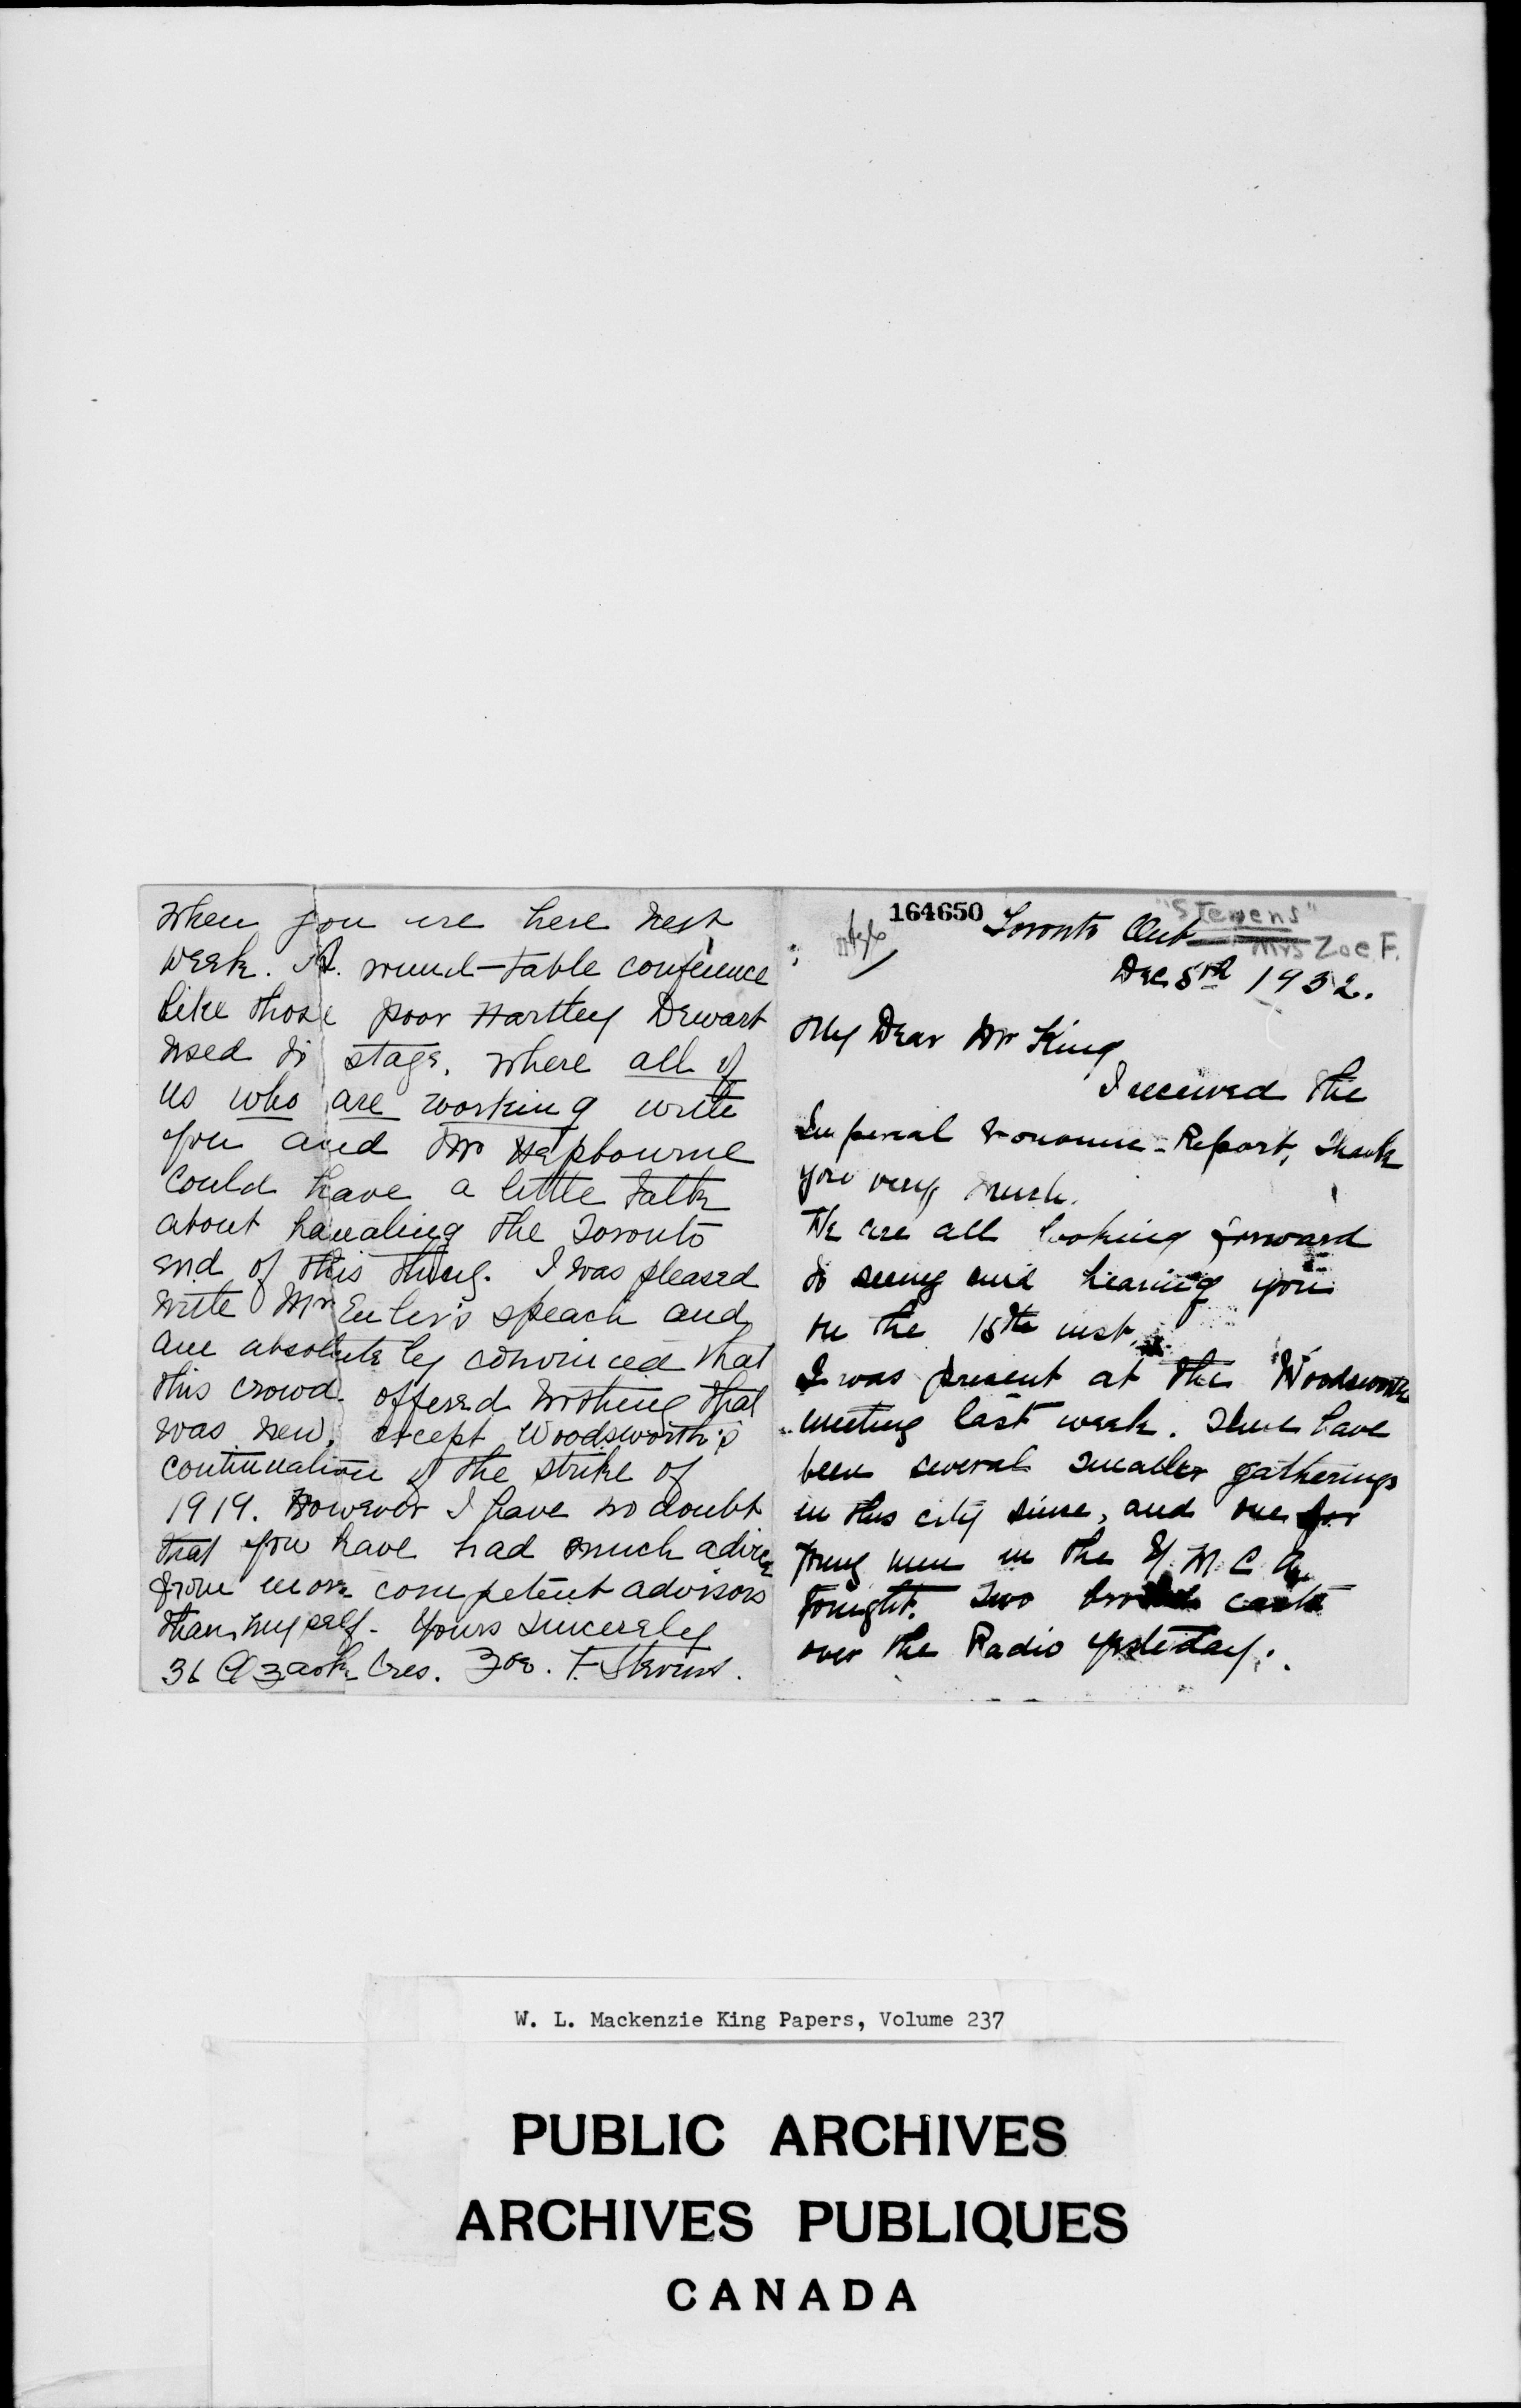 164650
"Stevens"
Mrs Zoe F.
Toronto Ont
Dec 5th 1932.
My Dear Mr King
I received the
Imperial Economic-Report, Thank
you very much.
We are all looking forward
to seeing and hearing you
on the 15th inst.
I was present at the Woodsworth
meeting last week. There have
been several smaller gatherings
in this city since, and one for
young men in the Y.M.C.A.
tonight. Two broad casts
over the Radio yesteday.
When you are here next
week. A. round-table conference
like those poor Hartley Dewart
used to stage, where all of
us who are working with
you and Mr Hepbourne
could have a little talk
about handling the Toronto
end of this thing. I was pleased
with Mr Euler's speach and
am absolutely convinced that
this crowd offered nothing that
was new, except Woodsworth's
continuation of the strike of
1919. However I have no doubt
that you have had much advice
from more competent advisors
than myself. Yours sincerely
36 Cres. Zoe. F. Stevens.
W. L. Mackenzie King Papers, Volume 237
PUBLIC ARCHIVES
ARCHIVES PUBLIQUES
CANADA